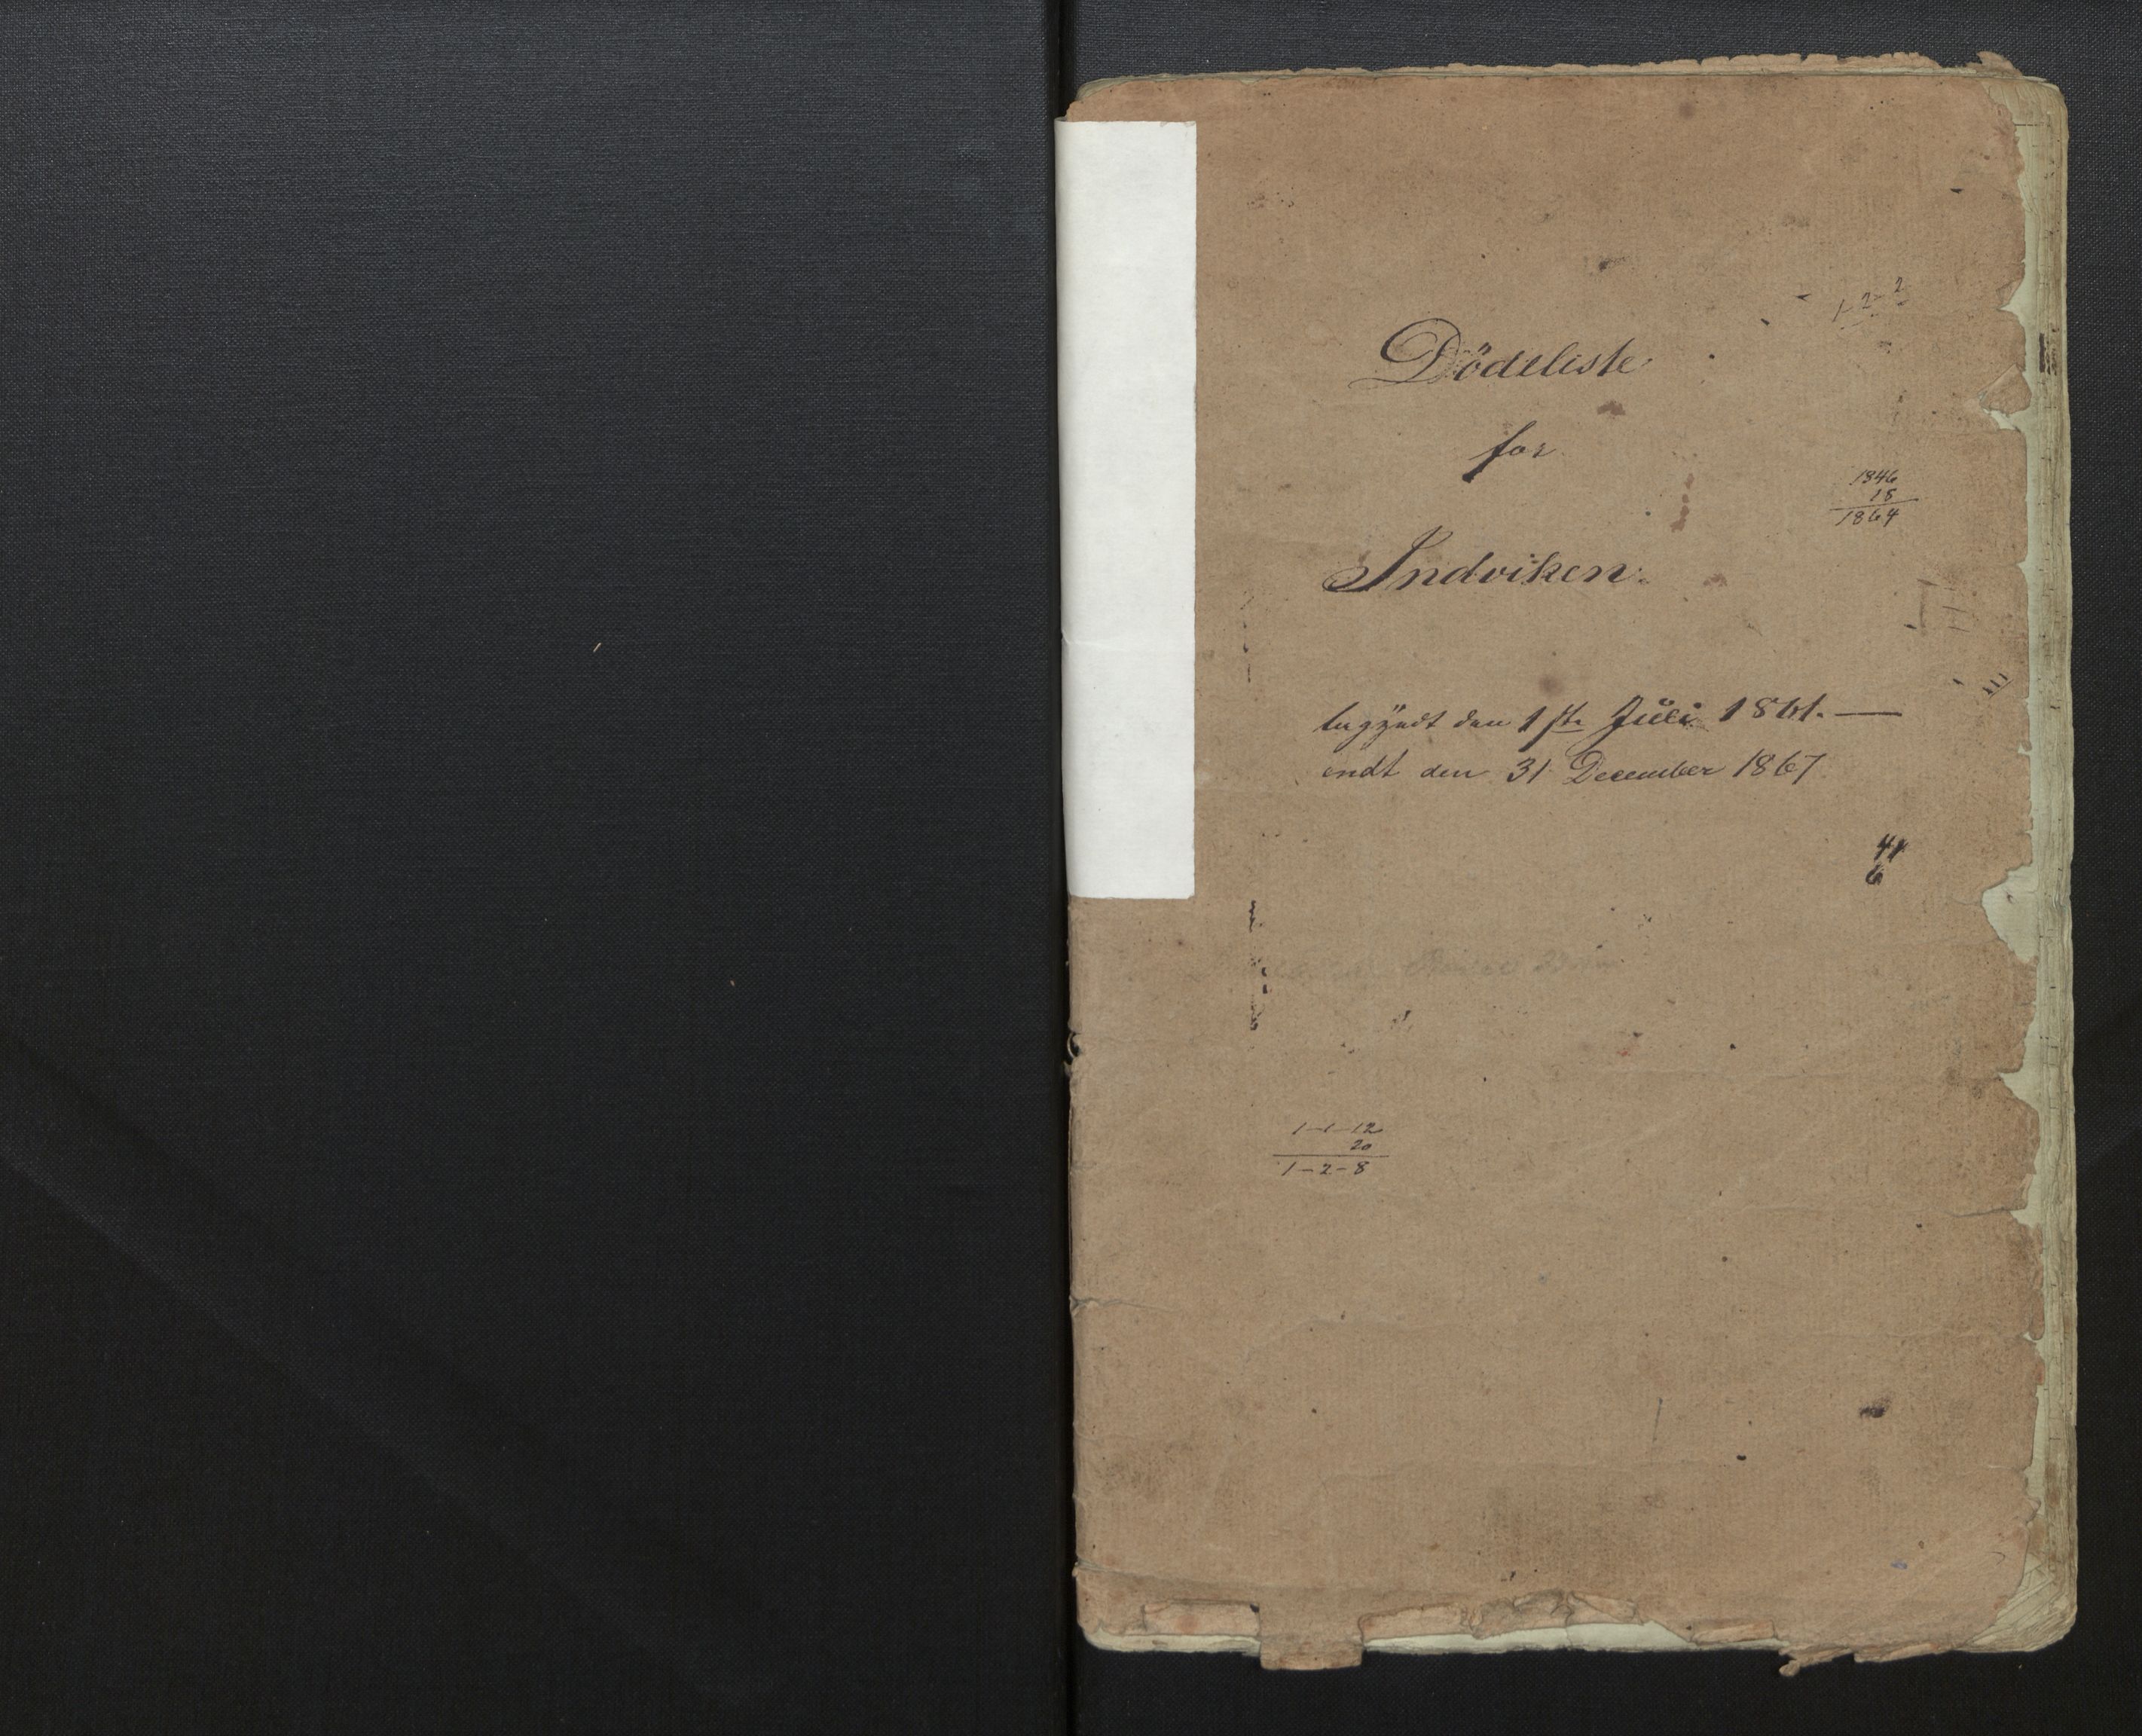 1-2-2
Dödsliste
for
1846
18
1864
Indviken.
begyndt den 1ste Juli 1861.—
endt den 31 December 1867
44
6
1-1-12
20
1-2-8